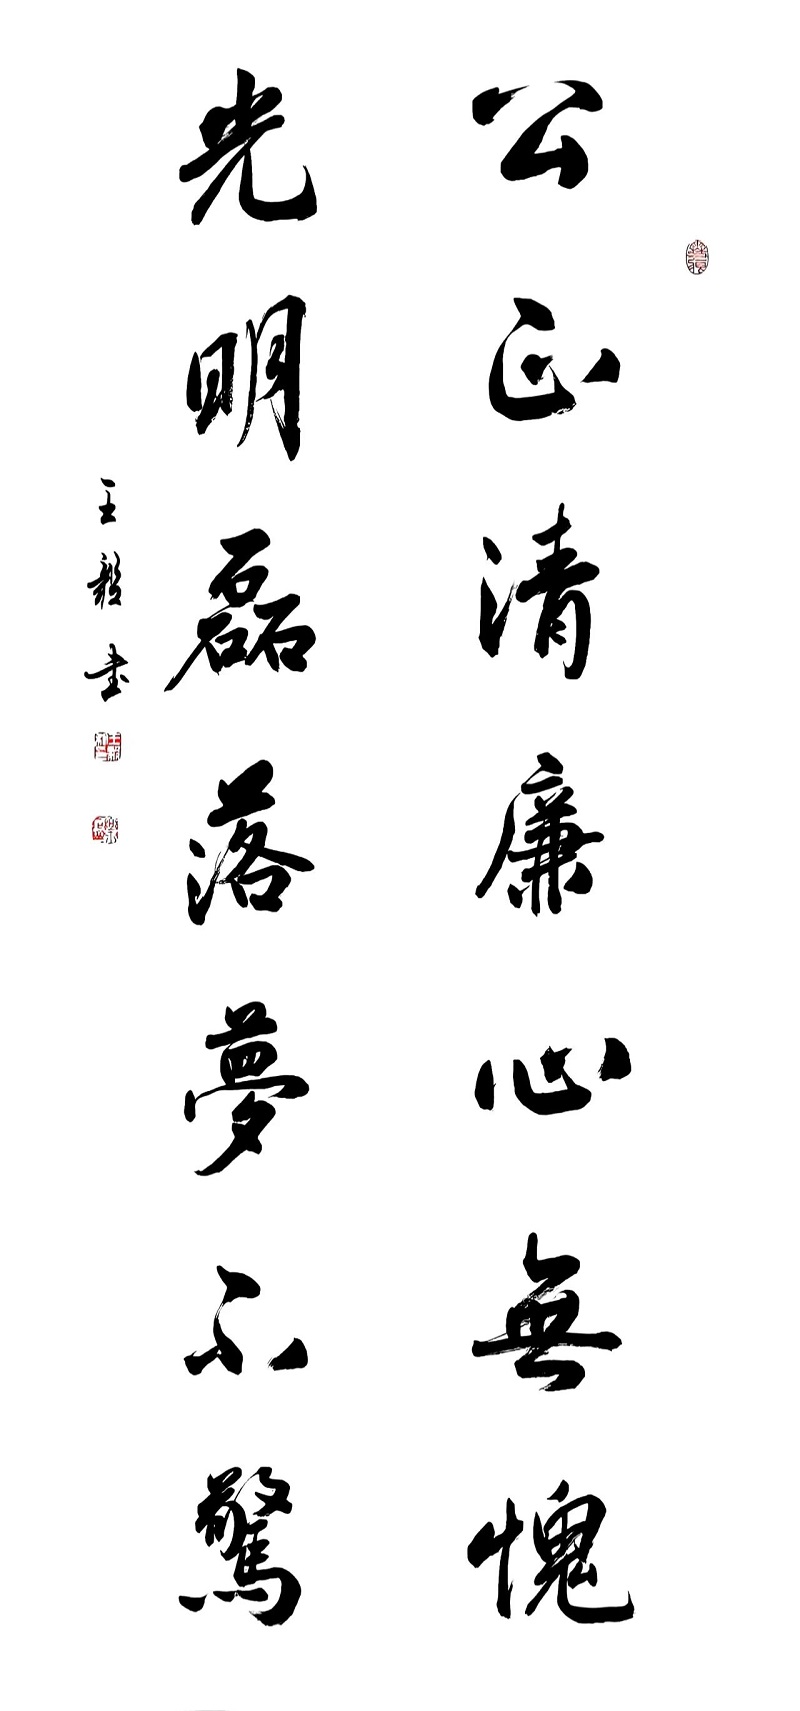 公正清廉心無愧
光明磊落夢不驚
王毅書